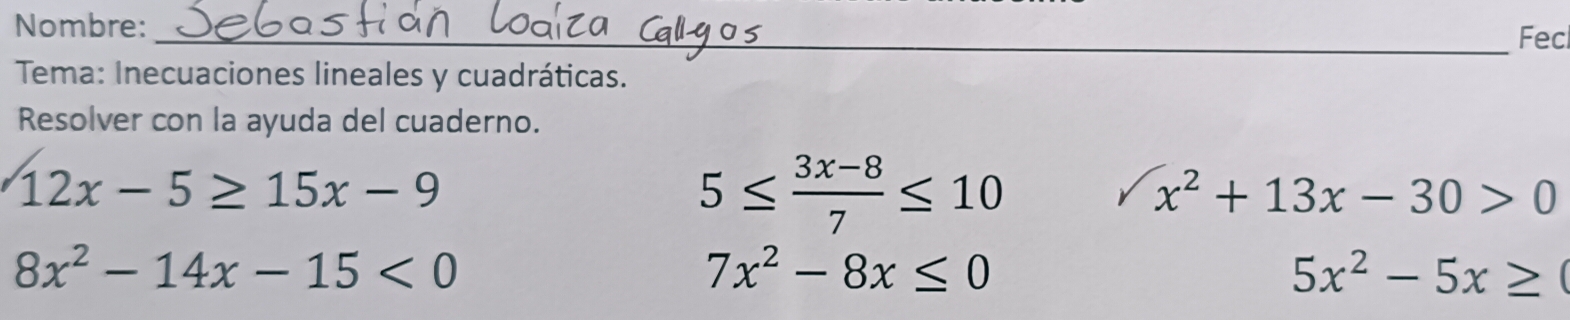 Nombre: Sebastián Loaiza Gallegos Fec
Tema: Inecuaciones lineales y cuadráticas.
Resolver con la ayuda del cuaderno.
✓12x − 5 ≥ 15x − 9 5 ≤ (3x−8)/7 ≤ 10 ✓x² + 13x − 30 > 0
8x² − 14x − 15 < 0 7x² − 8x ≤ 0 5x² − 5x ≥ 0